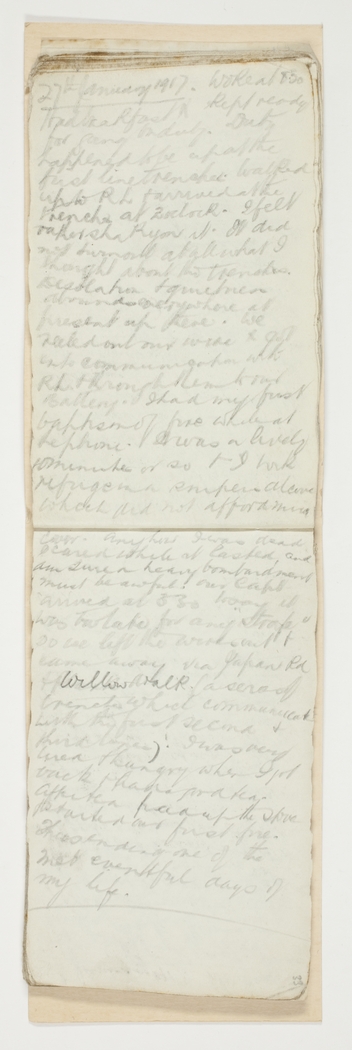 27th January 1917. Woke at 8.30
Had breakfast & kept ready
for going on duty. Duty
happened to be up at the
first line trenches. Walked
up to R.H. & arrived at the
trenches at 2 oclock. I felt
rather shaky on it. It did
not turn out at all what I
thought about the trenches.
Desolation & quietness
abounds everywhere at
present up there. We
reeled out our wire & got
into communication with
R.H. & through them to our
Battery. I had my first
baptism of fire while at
telephone. It was a lively
10 minutes or so & I took
refuge in a snipers alcove
which did not afford much
cover. Anyhow I was dead
scared while it lasted, and
am sure a heavy bombardment
must be awful. Our Capt
arrived at 3.30 but it
was too late for any "strafe"
so we left the wires out &
came away via Japan Rd
& Willow Walk. (a series of
trenches which communicate
with the first second &
third lines). I was very
tired & hungry when I got
back & had a good tea.
After tea fixed up the stove
& started our first fire.
Thus ending one of the
most eventful days of
my life.